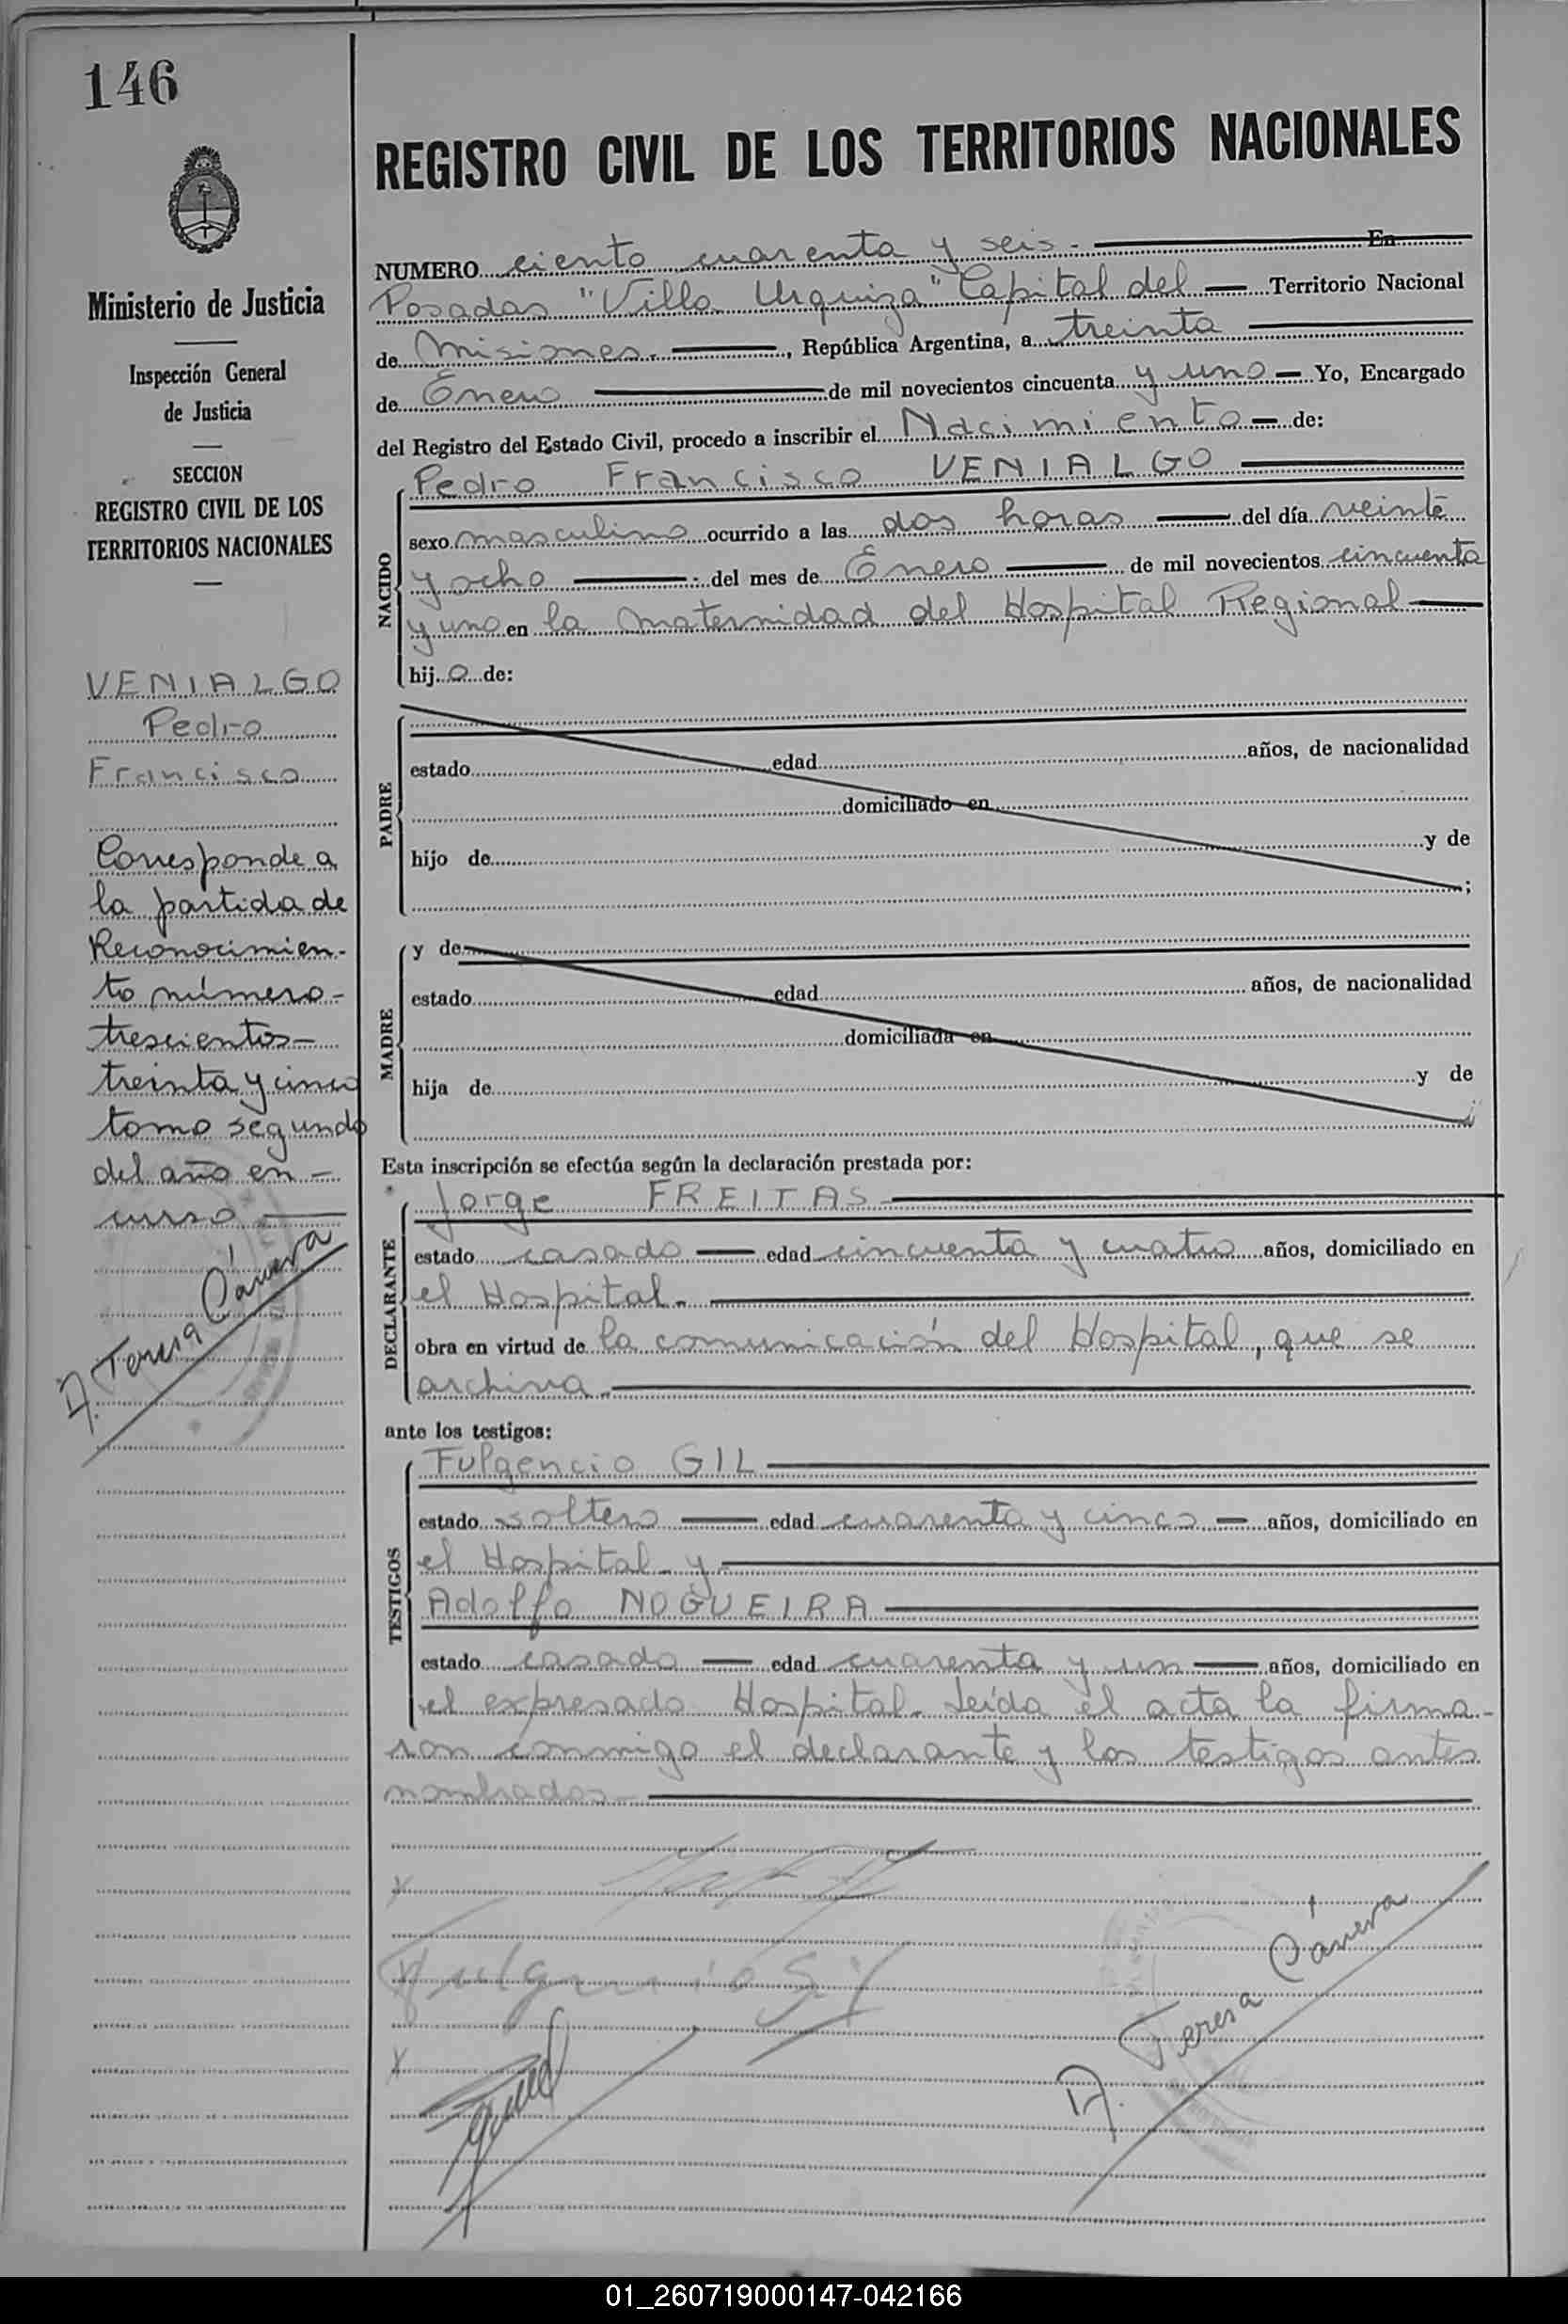 146
REGISTRO CIVIL DE LOS TERRITORIOS NACIONALES
Ministerio de Justicia
Inspección General
de Justicia
SECCION
REGISTRO CIVIL DE LOS
TERRITORIOS NACIONALES
VENIALGO
Pedro
Francisco
Corresponde a
la partida de
Reconocimien-
to número-
trescientos-
treinta y cinco
tomo segundo
del año en-
curso
A. Teresa Cánera
NUMERO ciento cuarenta y seis.- En
Posadas "Villa Urquiza" Capital del Territorio Nacional
de Misiones.-, República Argentina, a treinta
de Enero de mil novecientos cincuenta y uno Yo, Encargado
del Registro del Estado Civil, procedo a inscribir el Nacimiento de:
NACIDO
Pedro Francisco VENIALGO
sexo masculino ocurrido a las dos horas del día veinte
y ocho del mes de Enero de mil novecientos cincuenta
y uno en la Maternidad del Hospital Regional
hijo de:
PADRE
estado edad años, de nacionalidad
domiciliado en
hijo de y de
;
MADRE
y de
estado edad años, de nacionalidad
domiciliada en
hija de y de
;
Esta inscripción se efectúa según la declaración prestada por:
DECLARANTE
Jorge FREITAS
estado casado edad cincuenta y cuatro años, domiciliado en
el Hospital.-
obra en virtud de la comunicación del Hospital, que se
archiva.-
ante los testigos:
TESTIGOS
Fulgencio GIL
estado soltero edad cuarenta y cinco años, domiciliado en
el Hospital- y
Adolfo NOGUEIRA
estado casado edad cuarenta y un años, domiciliado en
el expresado Hospital.- Leída el acta la firma-
ron conmigo el declarante y los testigos antes
nombrados-
Fulgencio Gil
A. Teresa Cánera
01_260719000147-042166